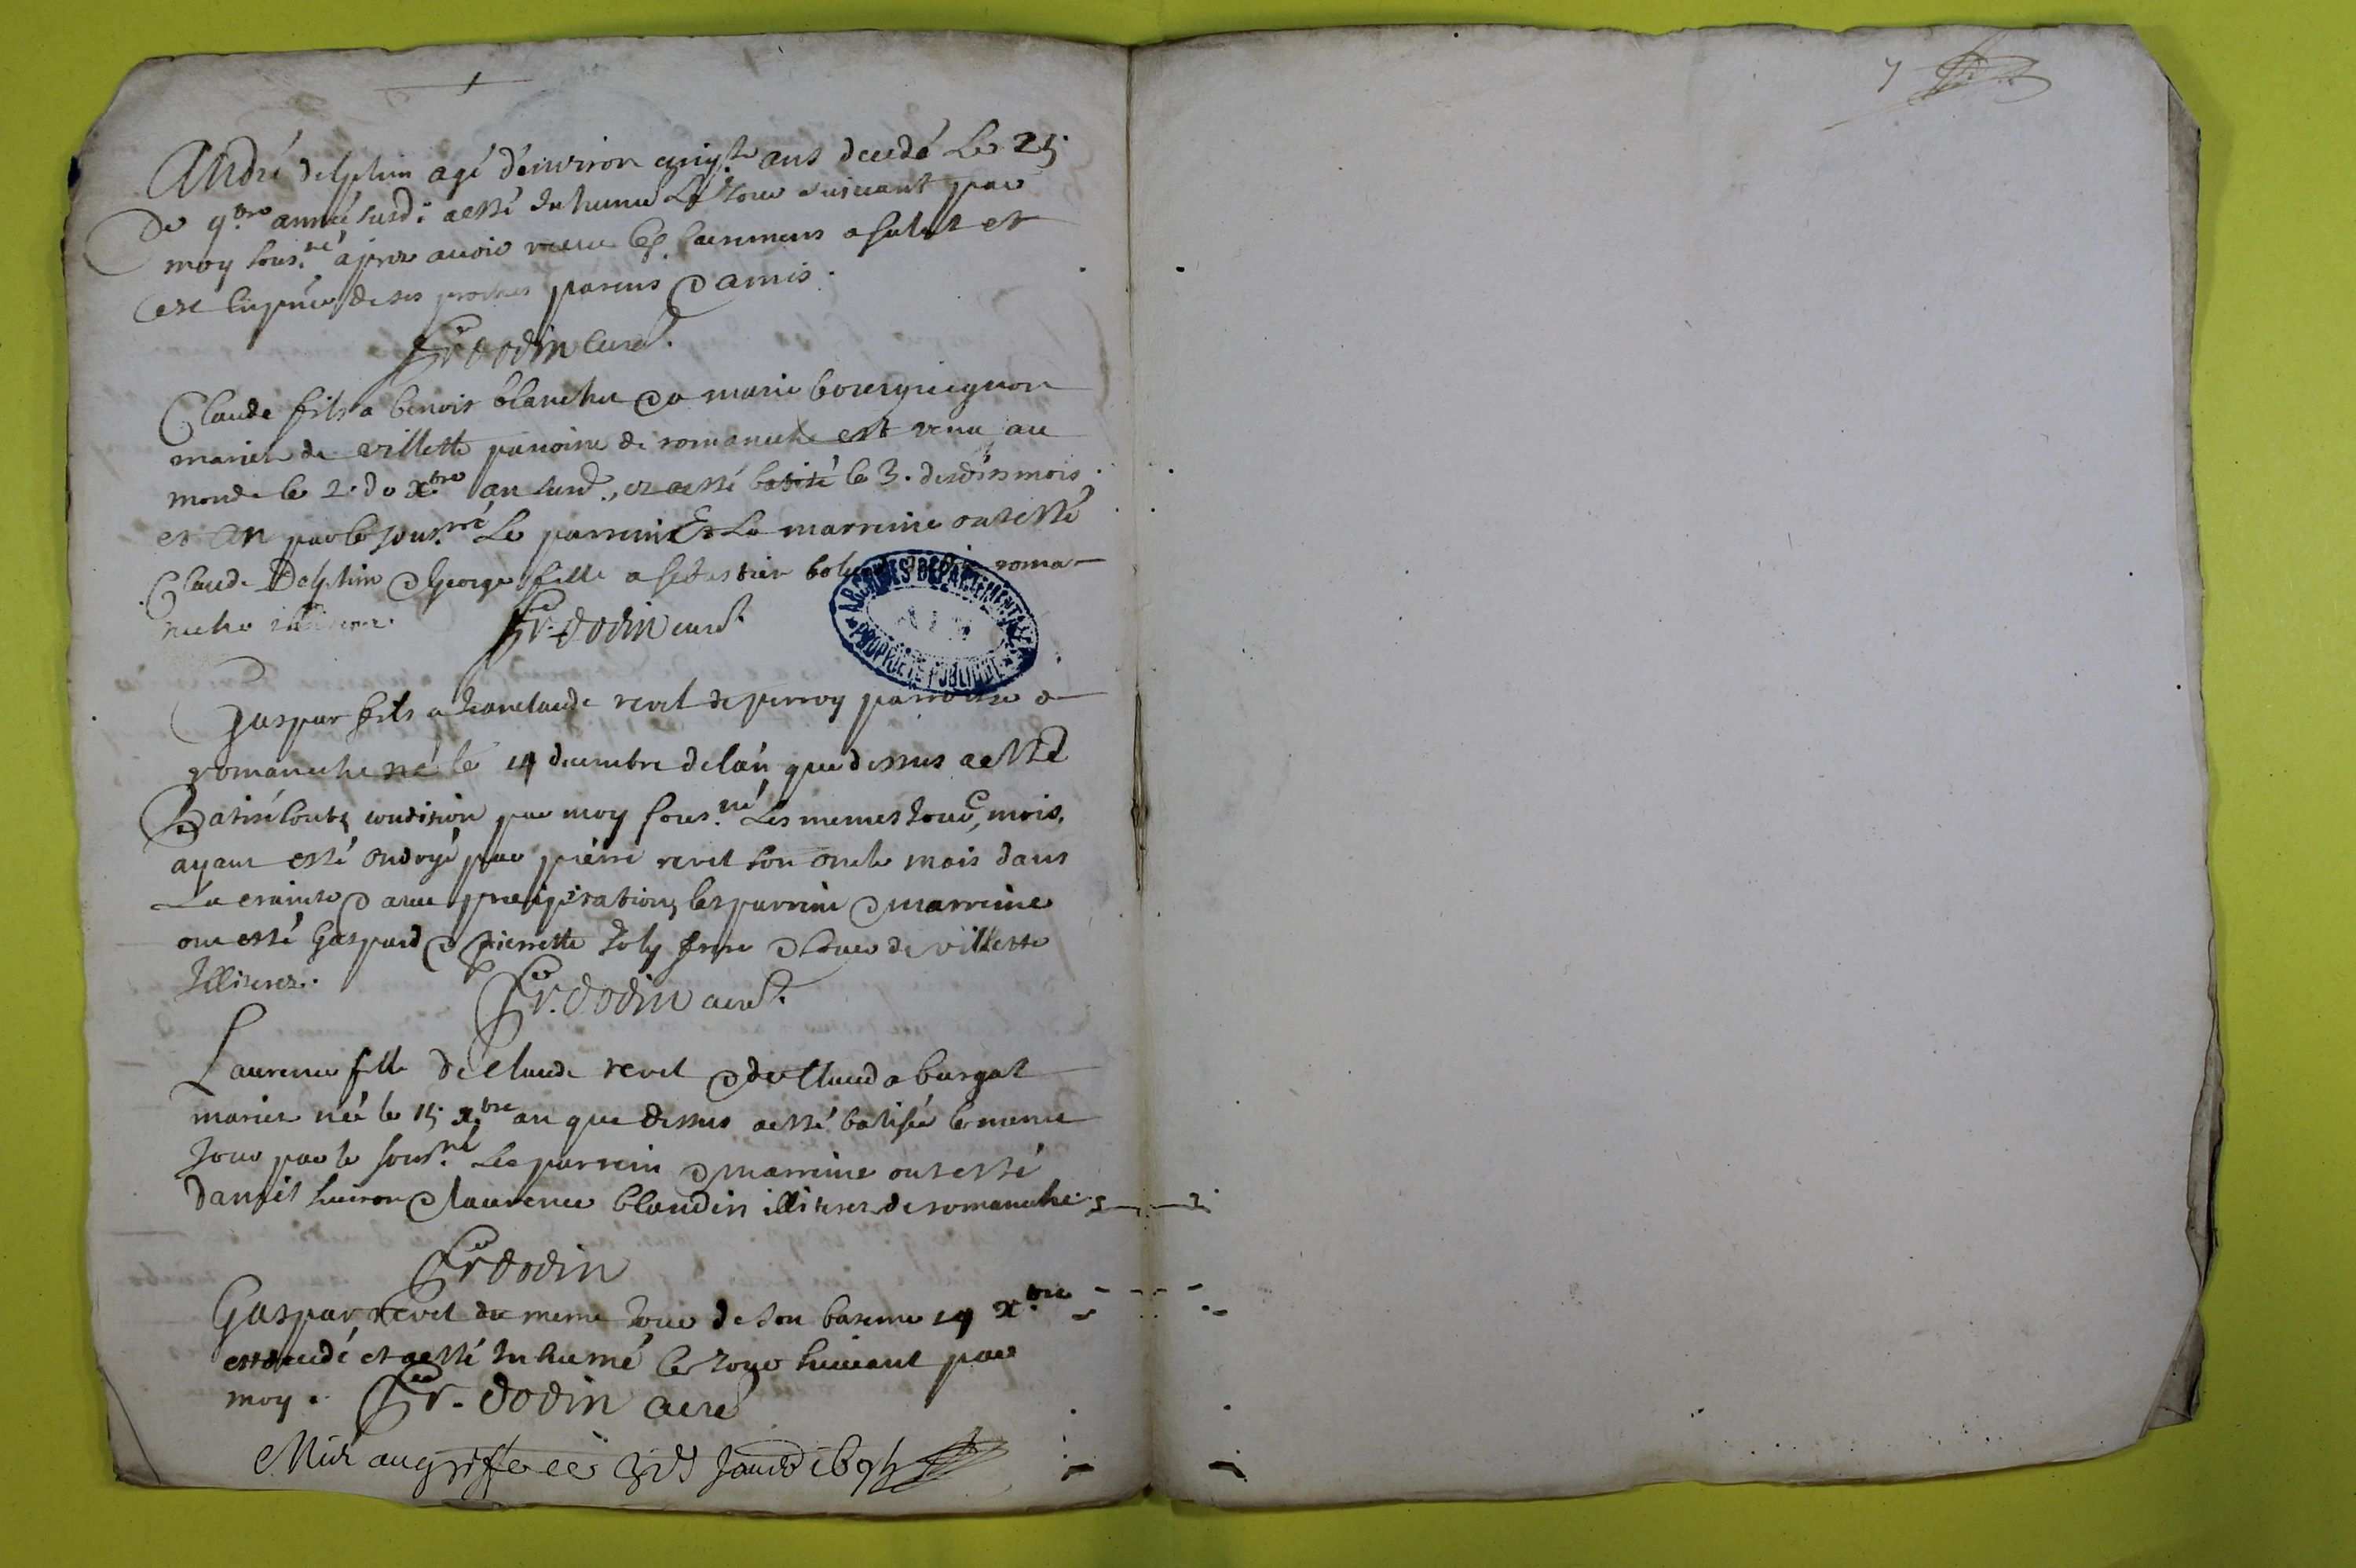 7
André delphin agé d'environ cinq.te ans decedé le 25
de 9.bre année susd. a esté inhumé le Jour suivant par
moy sous.né apres avoir receu les sacremens a salut et
ce en la p̃nce de ses proches parens & amis.
fr dodin curé.
Claude fils a benoit blanchu & a marie bourguignon
mariez de villette parroisse de romaneche est venu au
monde le 2. de x.bre an susd., et a esté batisé le 3. desdits mois
et an par le sous.né Le parrein Et La marreine ont esté
Claude Delphin & george fille a sebastien roma-
neche illiterez.
fr. dodin curé.
Gaspar fils a Jeanclaude revel de perroy parroisse de
romaneche né le 14 decembre de l'an que dessus a esté
Batisé soubs condition par moy sous.né Les memes Jour, mois,
ayant esté ondoyé par pierre revel son oncle mais dans
La crainte & avec precipitation, les parrein & marreine
ont esté Gaspard & pierrette Joly frere & soeur de villette
Illiterez.
fr. dodin curé.
Laurence fille de Claude revel & de Clauda burgat
mariez née le 15 x.bre an que dessus a esté batisée le meme
Jour par le sous.né Les parrein & marreine ont esté
daniel huiron & laurence blandin illiterez de romaneche.
fr dodin
Gaspar revel du meme Jour de son bateme 14 x.bre
est decedé et a esté Inhumé le Jour suivant par
moy. fr. dodin curé
Mis au griffe ce Janv.
ARCHIVES DÉPARTEMENTALES
PROPRIÉTÉ PUBLIQUE
AIN